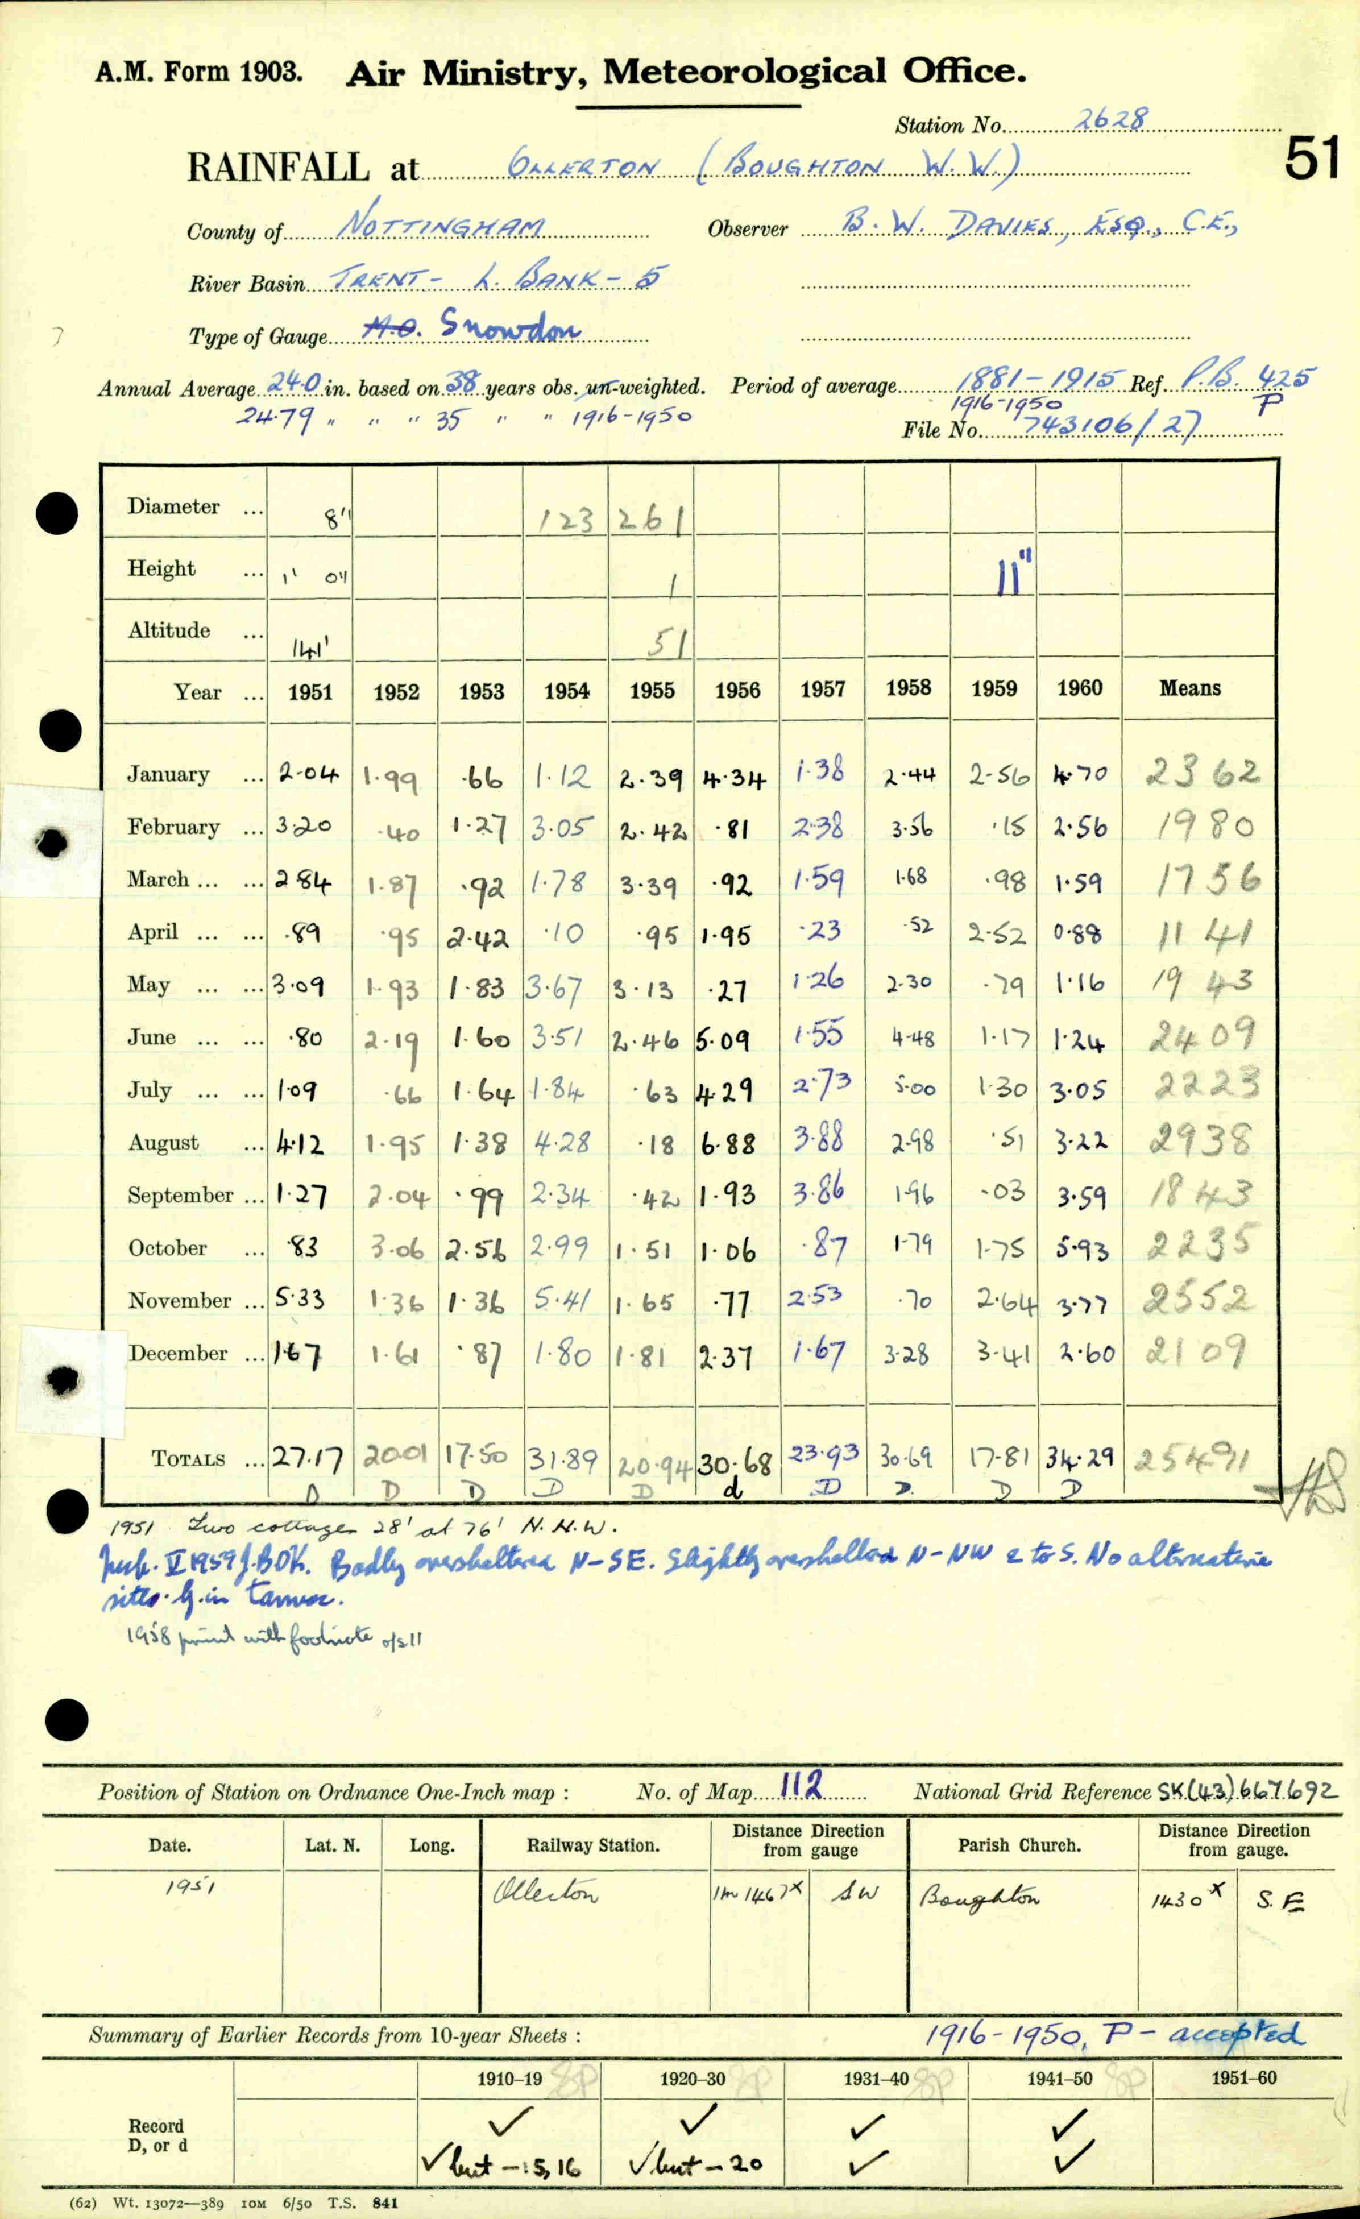 A.M. Form 1903. Air Ministry, Meteorological Office.
Station No. 2628
51
RAINFALL at OLLERTON (BOUGHTON W.W.)
County of NOTTINGHAM Observer B. W. DAVIES, ESQ., C.E.,
River Basin TRENT - L. BANK - 5
Type of Gauge M.O. Snowdon
Annual Average 24.0 in. based on 38 years obs. un-weighted. Period of average 1881-1915 Ref. P.B. 425
24.79 " " " 35 " " 1916-1950 1916-1950 P
File No. 743106/27
Diameter ... 8" 123 261
Height ... 1' 0" 1 11"
Altitude ... 141' 51
Year ... 1951 1952 1953 1954 1955 1956 1957 1958 1959 1960 Means
January ... 2.04 1.99 .66 1.12 2.39 4.34 1.38 2.44 2.56 4.70 23 62
February ... 3.20 .40 1.27 3.05 2.42 .81 2.38 3.56 .15 2.56 19 80
March ... ... 2.84 1.87 .92 1.78 3.39 .92 1.59 1.68 .98 1.59 17 56
April ... ... .89 .95 2.42 .10 .95 1.95 .23 .52 2.52 0.88 11 41
May ... ... 3.09 1.93 1.83 3.67 3.13 .27 1.26 2.30 .79 1.16 19 43
June ... ... .80 2.19 1.60 3.51 2.46 5.09 1.55 4.48 1.17 1.24 24 09
July ... ... 1.09 .66 1.64 1.84 .63 4.29 2.73 5.00 1.30 3.05 22 23
August ... 4.12 1.95 1.38 4.28 .18 6.88 3.88 2.98 .51 3.22 29 38
September ... 1.27 2.04 .99 2.34 .42 1.93 3.86 1.96 .03 3.59 18 43
October ... .83 3.06 2.56 2.99 1.51 1.06 .87 1.79 1.75 5.93 22 35
November ... 5.33 1.36 1.36 5.41 1.65 .77 2.53 .70 2.64 3.77 25 52
December ... 1.67 1.61 .87 1.80 1.81 2.37 1.67 3.28 3.41 2.60 21 09
TOTALS ... 27.17 20.01 17.50 31.89 20.94 30.68 23.93 30.69 17.81 34.29 254 91
D D D D D d D D. D D
1951 Two cottages 28' at 76' N.N.W.
Insp. V 1959 J.BOK. Badly oversheltered N-SE. Slightly oversheltered N-NW & to S. No alternative
sites. G. in
1958 print with footnote
Position of Station on Ordnance One-Inch map : No. of Map 112 National Grid Reference SK(43)667692
Date. Lat. N. Long. Railway Station. Distance from gauge Direction Parish Church. Distance from gauge. Direction
1951 Ollerton 1m 1467x SW Boughton 1430x S.E
Summary of Earlier Records from 10-year Sheets : 1916-1950, P - accepted
1910-19 1920-30 1931-40 1941-50 1951-60
Record ✓ ✓ ✓ ✓
D, or d ✓ but -15,16 ✓ but -20 ✓ ✓
(62) Wt. 13072—389 10M 6/50 T.S. 841